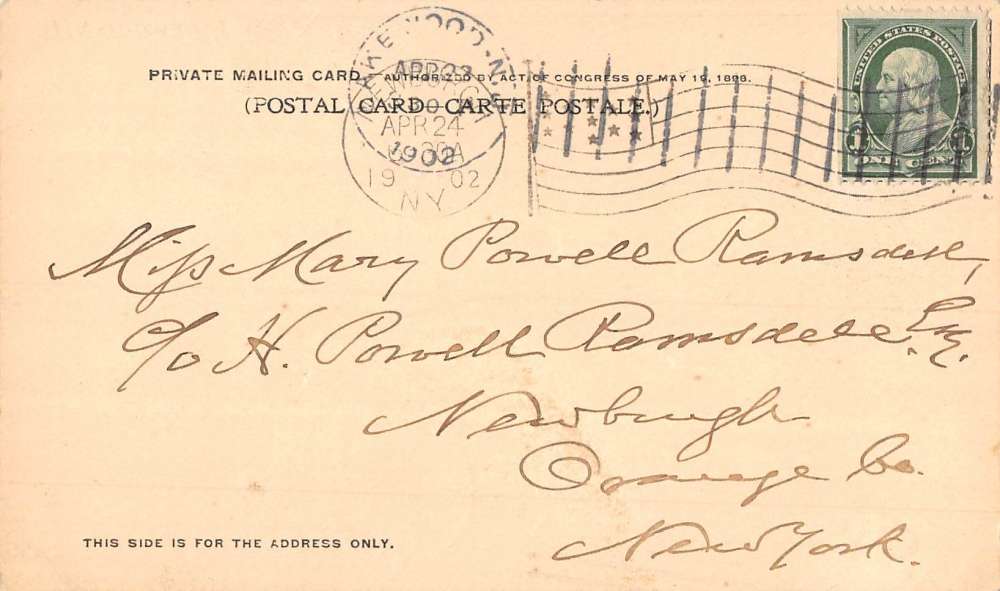 PRIVATE MAILING CARD—AUTHORIZED BY ACT OF CONGRESS OF MAY 19, 1898.
(POSTAL CARD—CARTE POSTALE.)
LAKEWOOD. N.J.
APR 23
1902
APR 24
19 02
NY
UNITED STATES POSTAGE
1 1
ONE CENT
Miss Mary Powell Ramsdell,
c/o H. Powell Ramsdell Esq.
Newburgh
Orange Co.
New York.
THIS SIDE IS FOR THE ADDRESS ONLY.